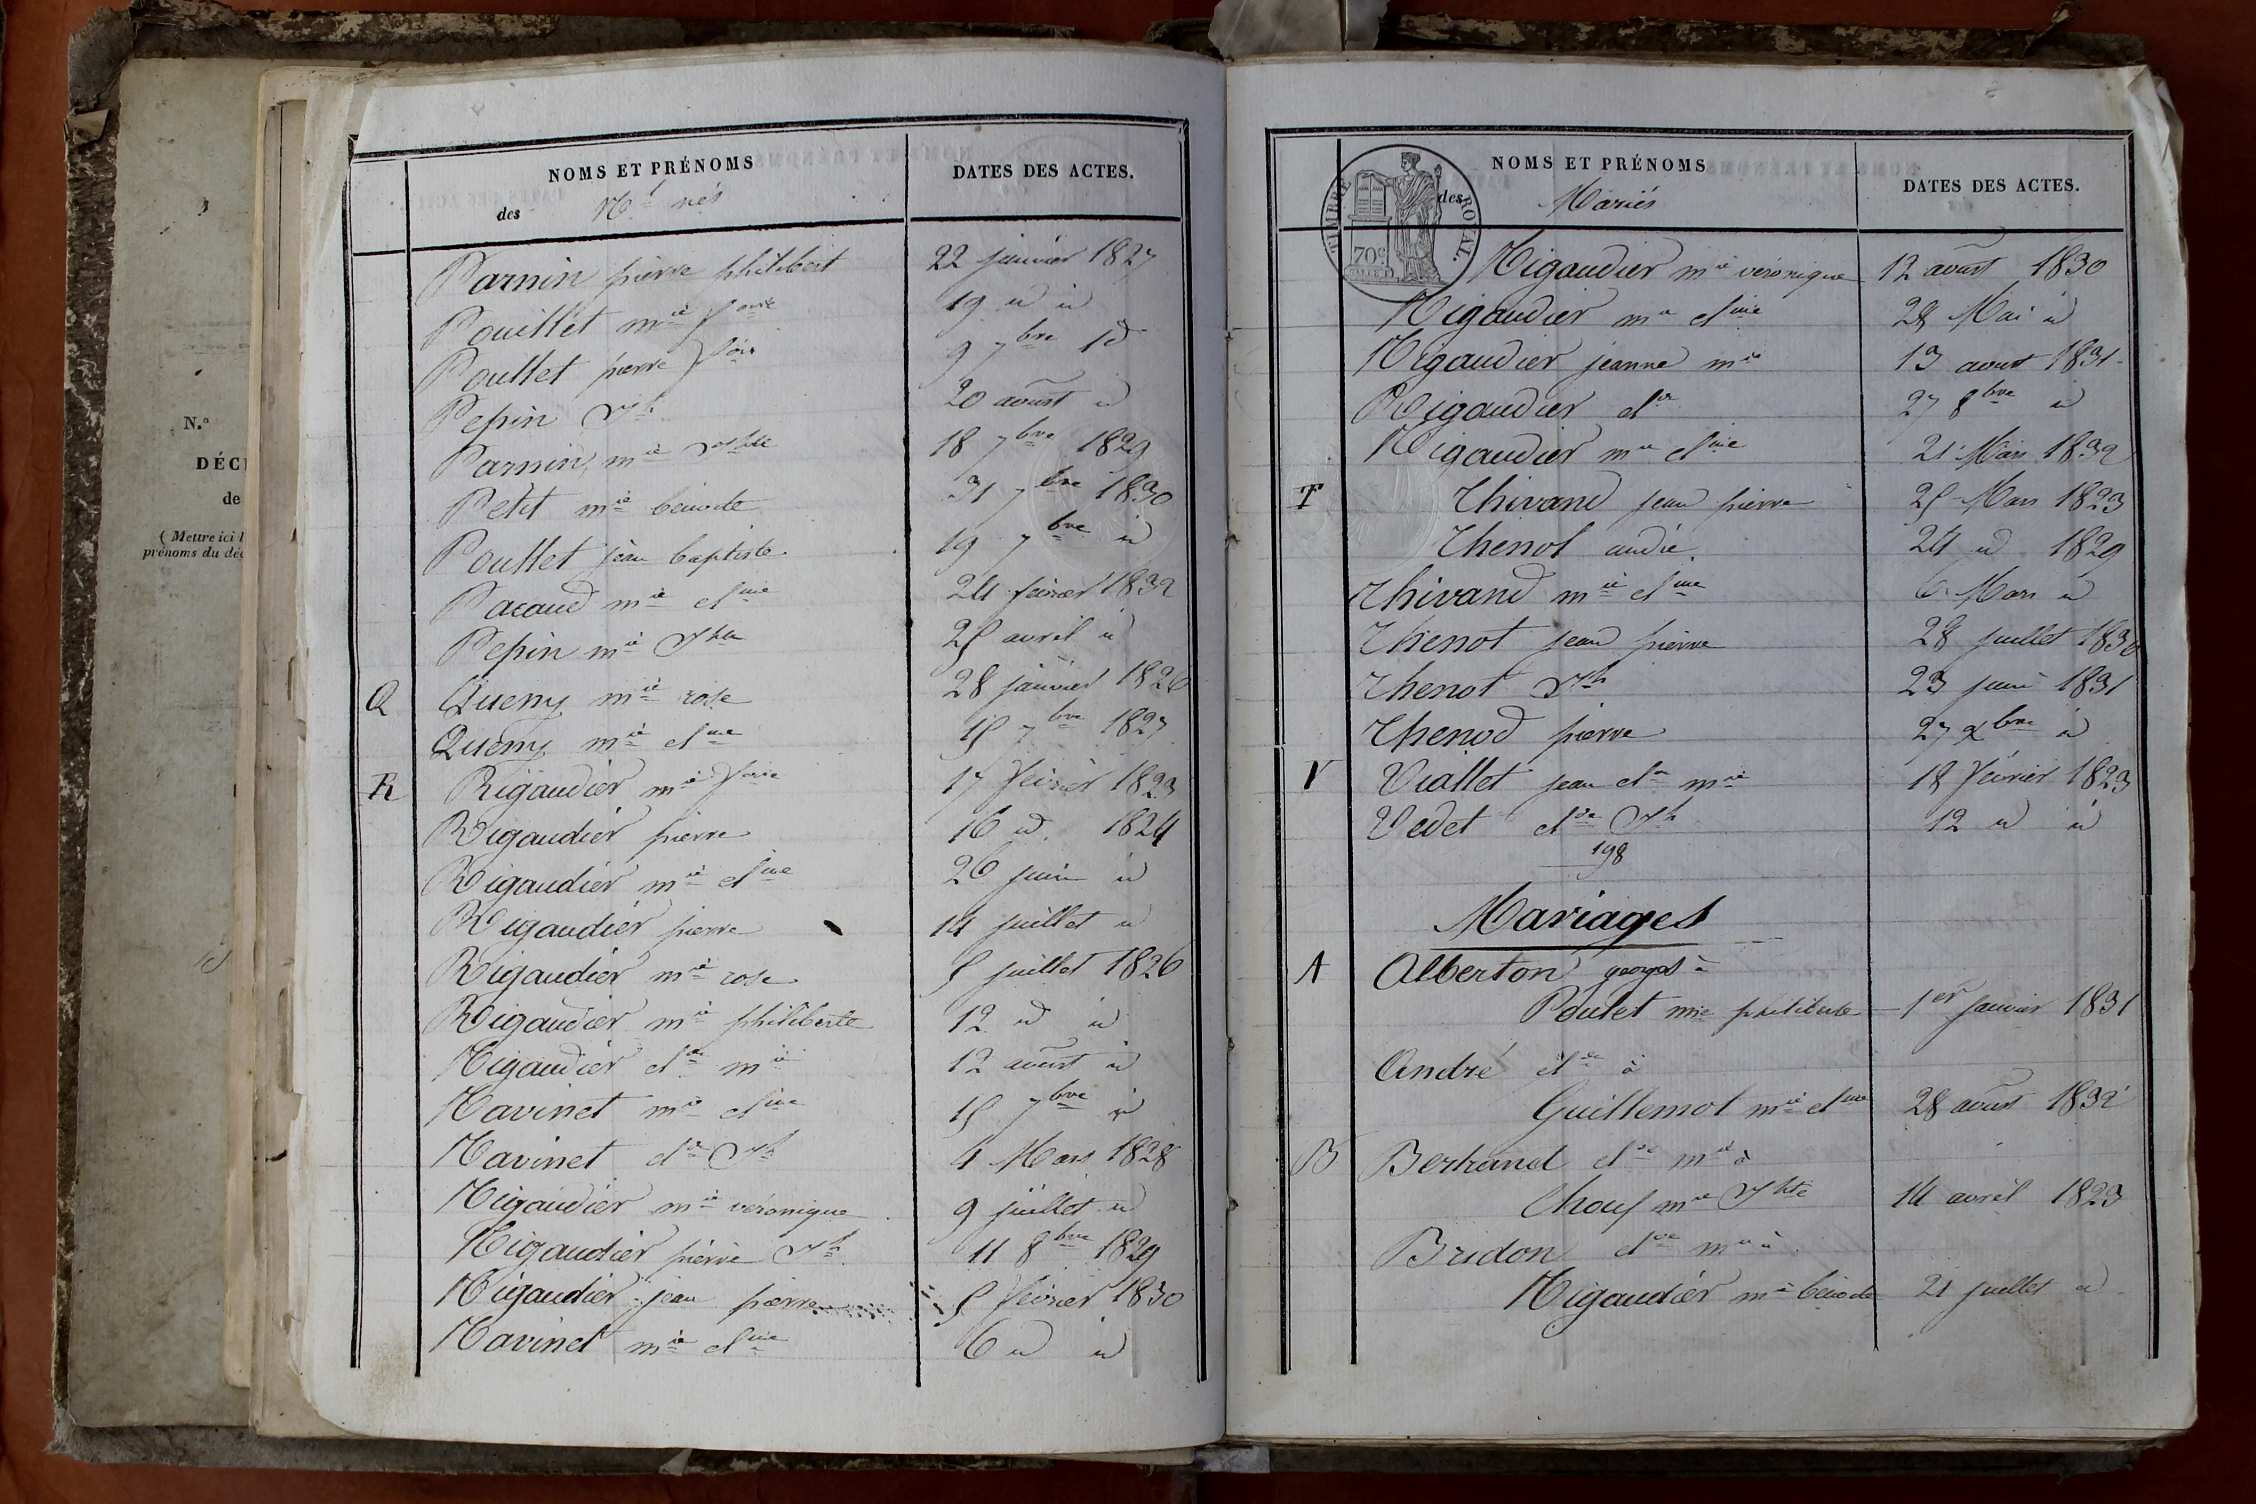 N.o
DÉC
de
( Mettre ici l
prénoms du déc
NOMS ET PRÉNOMS
DATES DES ACTES.
des nés
Parnin pierre philibert 22 janvier 1827
Pouillet mie 19 id id
Poullet pierre 9 7bre id
Pepin Jh 20 aoust id
Parnin mie 18 7bre 1829
Petit mie benoite 31 7bre 1830
Poullet jean baptiste 19 7bre id
Pacaud mie cline 24 fevrier 1832
Pepin mie 25 avril id
Q Quemy mie rose 28 janvier 1826
Quemy mie clne 15 7bre 1827
R Rigaudier mie 17 fevrier 1823
Rigaudier pierre 16 id 1824
Rigaudier mie cline 26 juin id
Rigaudier pierre 14 juillet id
Rigaudier mie rose 5 juillet 1826
Rigaudier mie philiberte 12 id id
Rigaudier clde mie 12 aoust id
Ravinet mie cline 15 7bre id
Ravinet clde Jh 4 Mars 1828
Rigaudier mie véronique 9 juillet id
Rigaudier pierre Jh 11 8bre 1829
Rigaudier jean pierre 5 fevrier 1830
Ravinet mie cline 6 id id
TIMBRE ROYAL.
70c
NOMS ET PRÉNOMS
DATES DES ACTES.
des Mariés
Rigaudier mie véronique 12 avust 1830
Rigaudier mie cline 28 Mai id
Rigaudier jeanne mie 13 aoust 1831
Rigaudier clde 27 8bre id
Rigaudier mie cline 21 Mars 1832
T Thivand jean pierre 25 Mars 1823
Thenot andré 24 id 1829
Thivand mie cline 6 Mars id
Thenot jean pierre 28 juillet 1830
Thenot Jh 23 juin 1831
Thenod pierre 27 xbre id
V Viallet jean clde mie 18 fevrier 1823
Vedet clde Jh 12 id id
198
Mariages
A Alberton georges à
Poulet mie philiberte 1er janvier 1831
André clde à
Guillemot mie cline 28 aoust 1832
B Bertrand clde mie à
mie Jhte 14 avril 1823
Bridon clde mie à
Rigaudier mie benoite 21 juillet id